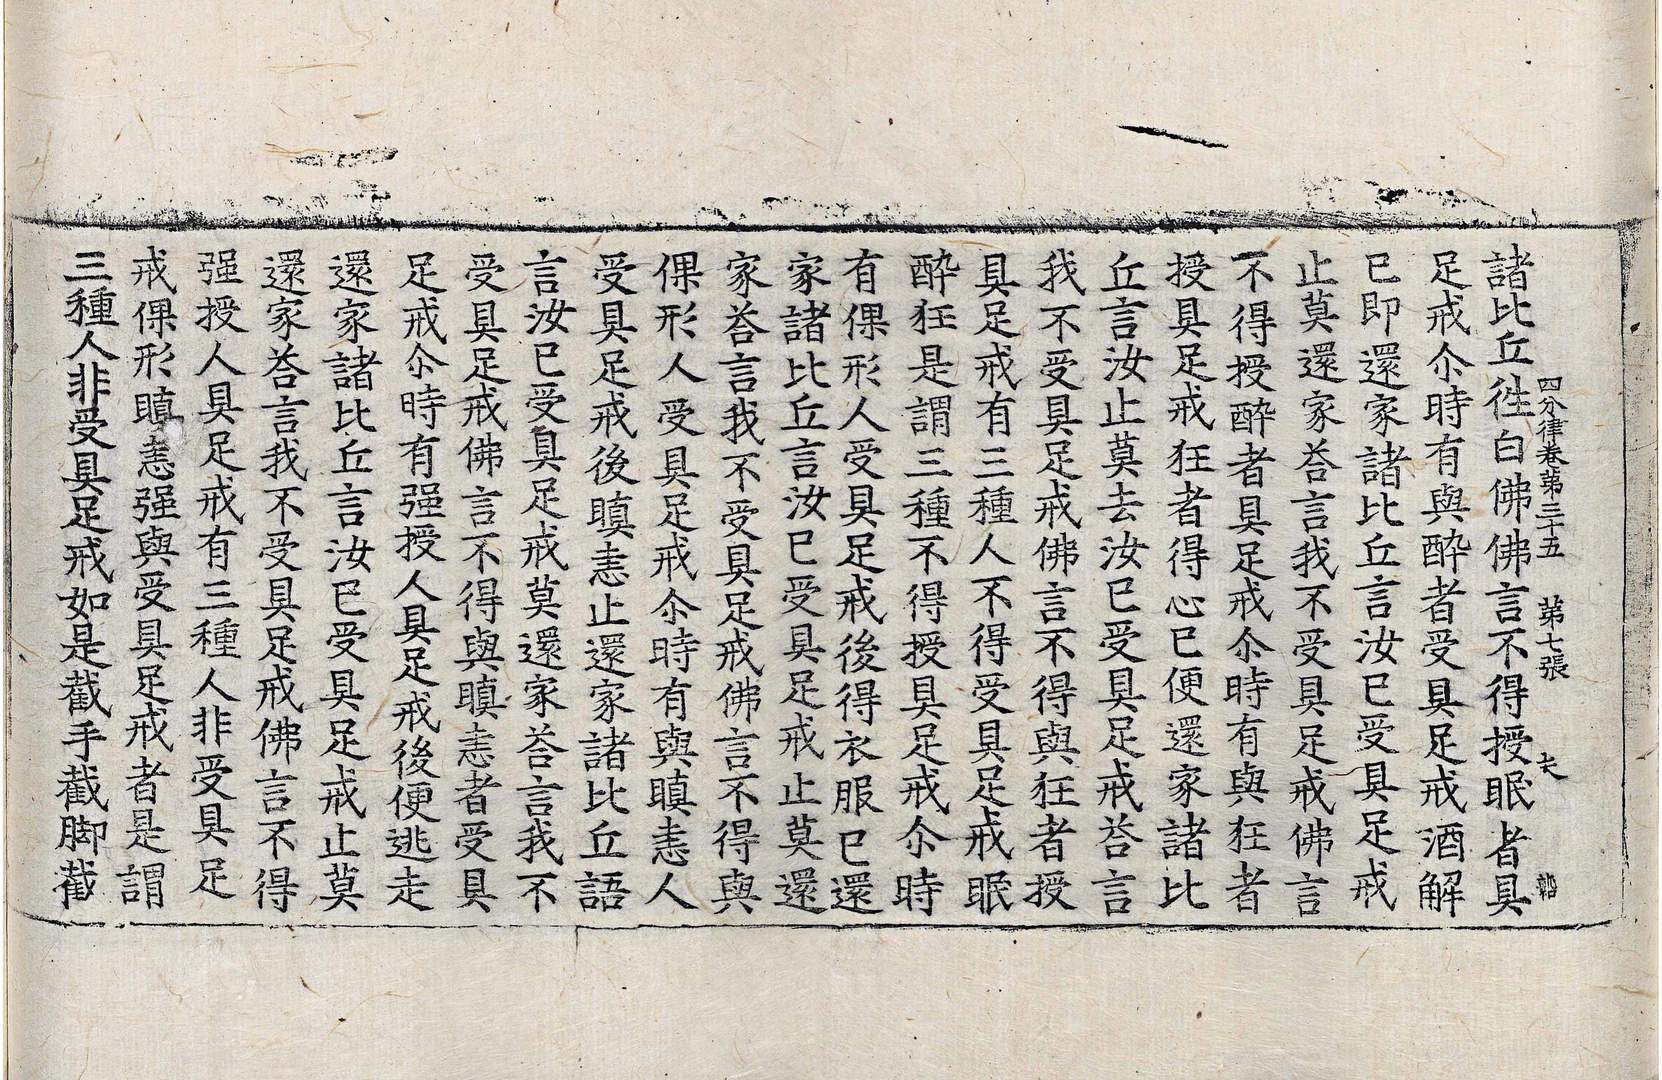 四分律卷苐三十五　苐七張　夫
諸比丘徃白佛佛言不得授眠者具
足戒尒時有與醉者受具足戒酒解
已即還家諸比丘言汝已受具足戒
止莫還家荅言我不受具足戒佛言
不得授醉者具足戒尒時有與狂者
授具足戒狂者得心已便還家諸比
丘言汝止莫去汝已受具足戒荅言
我不受具足戒佛言不得與狂者授
具足戒有三種人不得受具足戒眠
醉狂是謂三種不得授具足戒尒時
有倮形人受具足戒後得衣服已還
家諸比丘言汝已受具足戒止莫還
家荅言我不受具足戒佛言不得與
倮形人受具足戒尒時有與瞋恚人
受具足戒後瞋恚止還家諸比丘語
言汝已受具足戒莫還家荅言我不
受具足戒佛言不得與瞋恚者受具
足戒尒時有强授人具足戒後便逃走
還家諸比丘言汝已受具足戒止莫
還家荅言我不受具足戒佛言不得
强授人具足戒有三種人非受具足
戒倮形瞋恚强與受具足戒者是謂
三種人非受具足戒如是截手截脚截